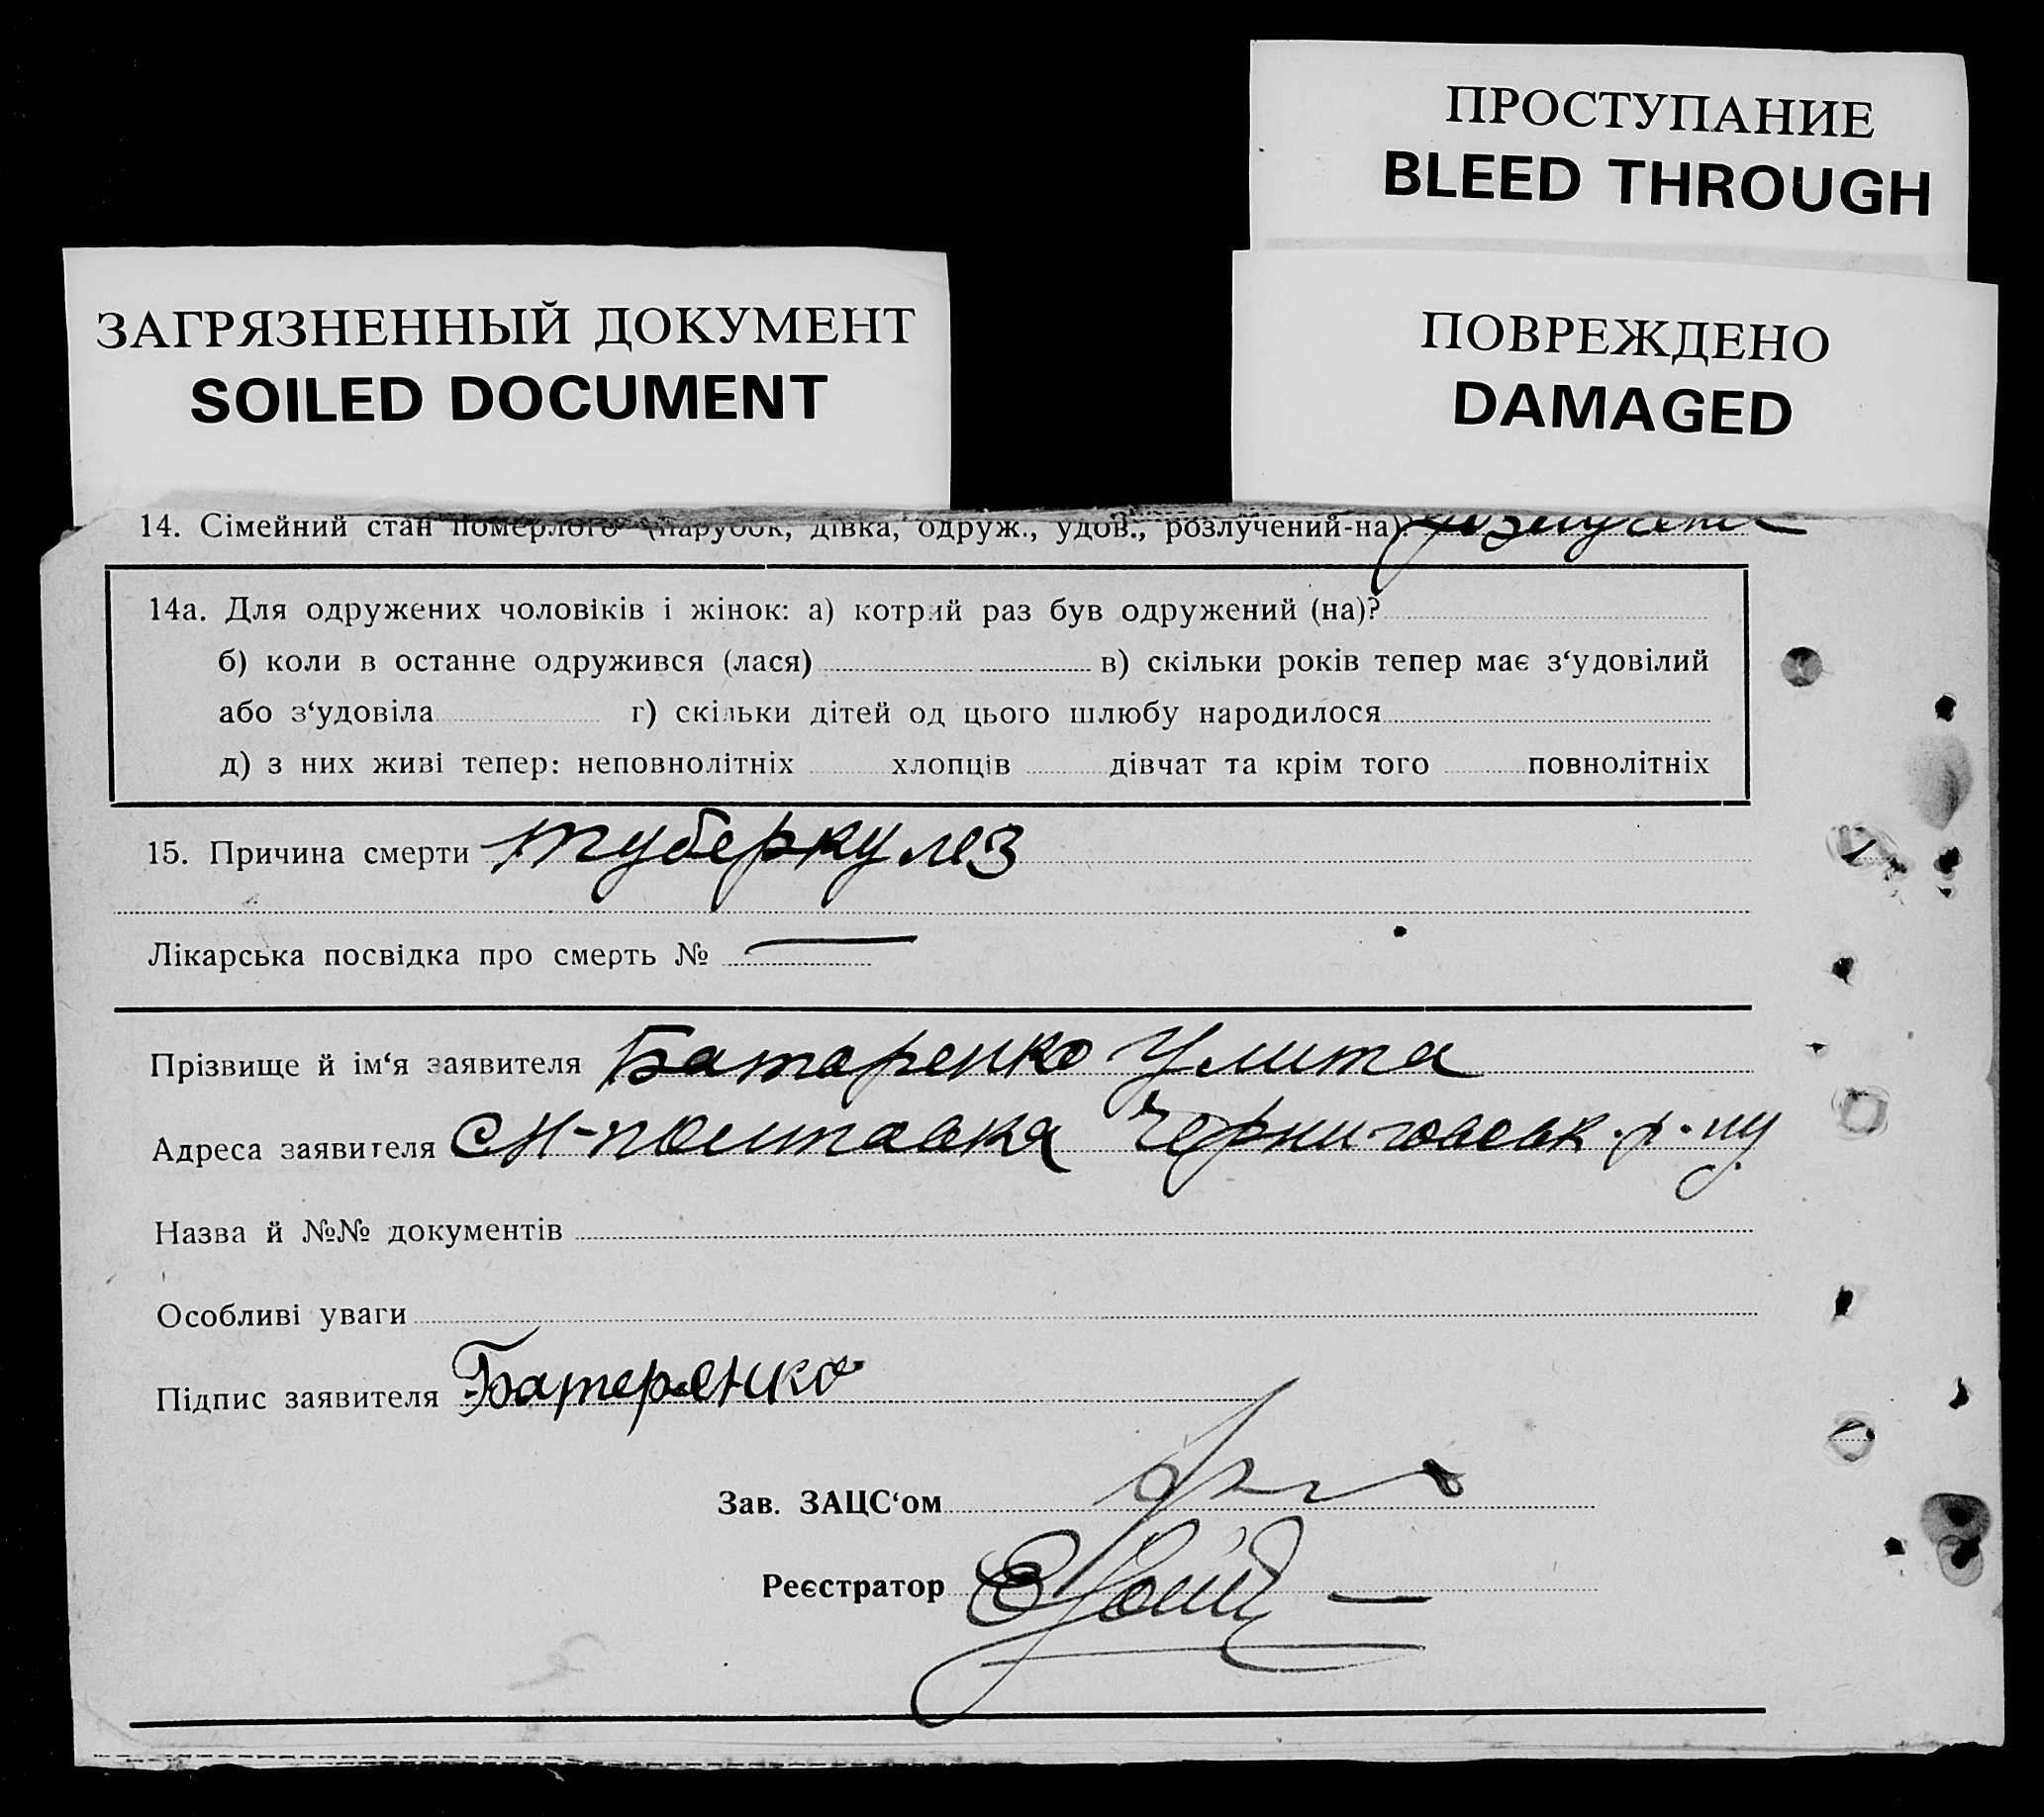 ПРОСТУПАНИЕ
BLEED THROUGH
ЗАГРЯЗНЕННЫЙ ДОКУМЕНТ
SOILED DOCUMENT
ПОВРЕЖДЕНО
DAMAGED
14. Сімейний стан померлого (парубок, дівка, одруж., удов., розлучений-на).
14а. Для одружених чоловіків і жінок: а) котрий раз був одружений (на)?
б) коли в останне одружився (лася) в) скільки років тепер має з‘удовілий
або з‘удовіла г) скільки дітей од цього шлюбу народилося
д) з них живі тепер: неповнолітніх хлопців дівчат та крім того повнолітніх
15. Причина смерти туберкулез
Лікарська посвідка про смерть № —
Прізвище й ім‘я заявителя Батаренко Улита
Адреса заявителя Н-полтавка Черниговськ. р-ну
Назва й №№ документів
Особливі уваги
Підпис заявителя Батеренко
Зав. ЗАЦС‘ом
Реєстратор